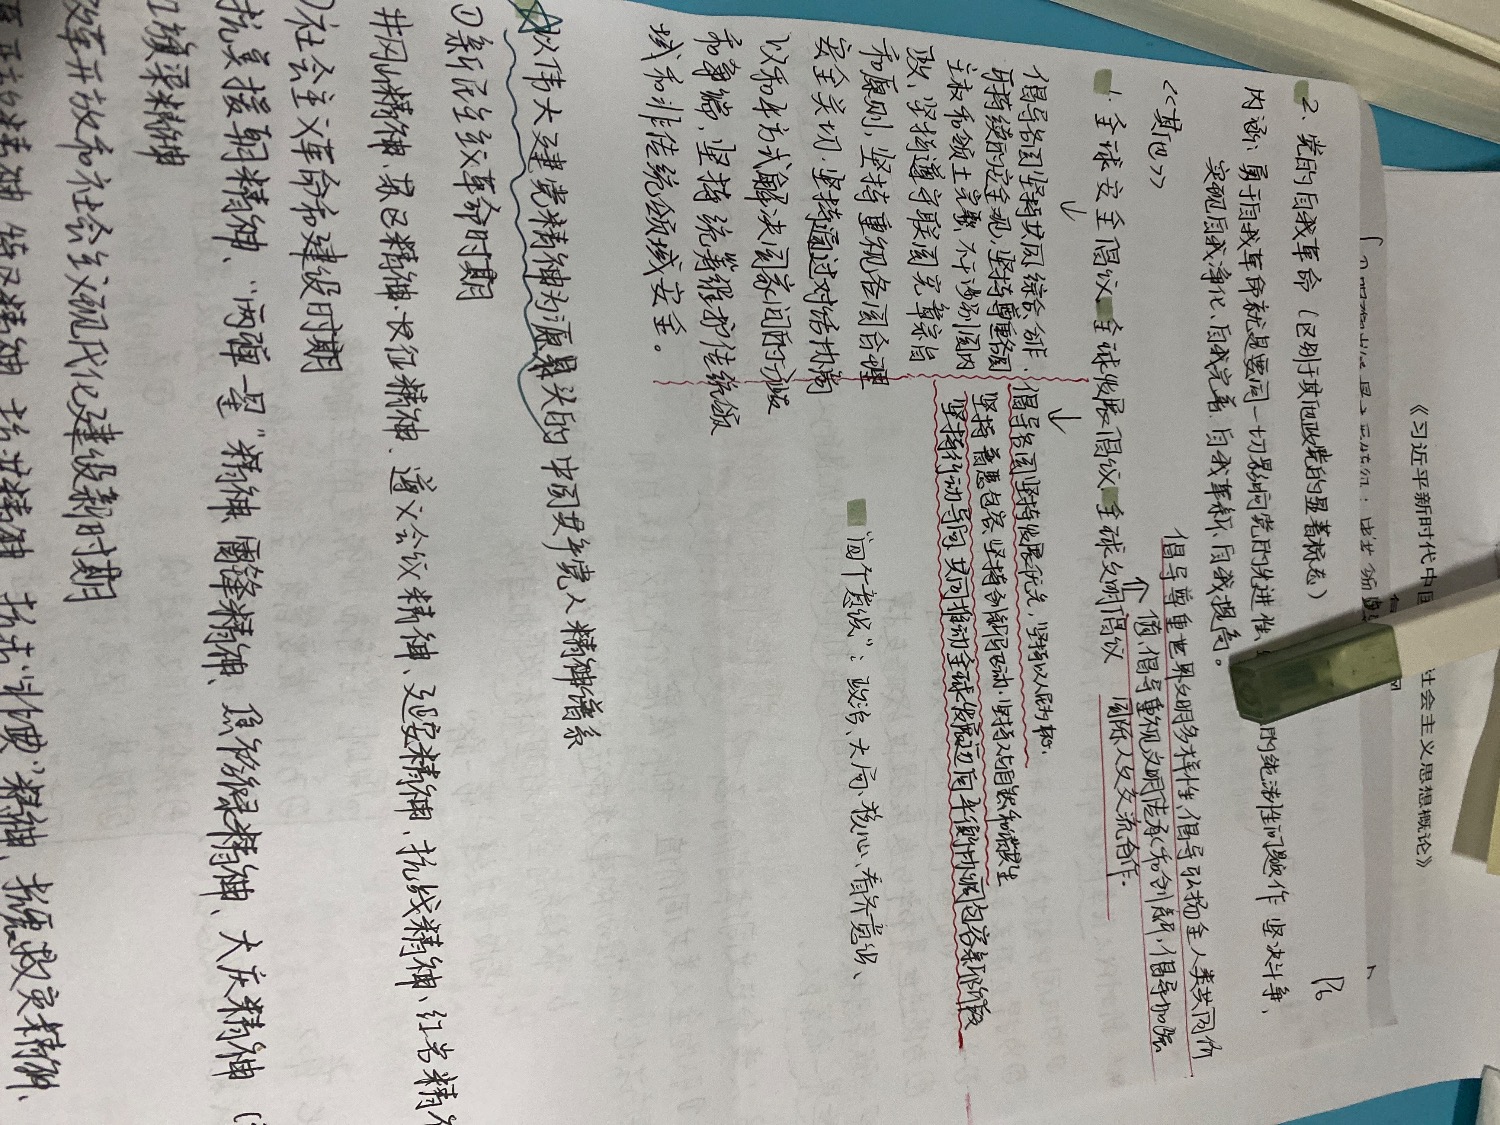 《习近平新时代中国
社会主义思想概论》
P6
2、党的自我革命（区别于其他政党的显著标志）
内涵：勇于自我革命就是要同一切影响党的先进性
的纯洁性问题作坚决斗争，
实现自我净化、自我完善、自我革新、自我提高。
《其他》
倡导尊重世界文明多样性，倡导弘扬全人类共同价
值，倡导重视文明传承和创新，倡导加强
国际人文交流合作.
1. 全球安全倡议 全球发展倡议 全球文明倡议
倡导各国坚持共同、综合、合作、
可持续的安全观，坚持尊重各国
主权和领土完整，不干涉别国内
政，坚持遵守联合国宪章宗旨
和原则，坚持重视各国合理
安全关切，坚持通过对话协商
以和平方式解决国家间的分歧
和争端，坚持统筹维护传统领
域和非传统领域安全。
倡导各国坚持发展优先，坚持以人民为中心.
坚持普惠包容，坚持创新驱动，坚持人与自然和谐共生
坚持行动导向，共同推动全球发展迈向平衡协调包容新阶段
“四个意识”：政治、大局、核心、看齐意识、
以伟大建党精神为源头的中国共产党人精神谱系
①新民主主义革命时期
井冈山精神、苏区精神、长征精神、遵义会议精神、延安精神、抗战精神、红岩精
社会主义革命和建设时期
抗美援朝精神、“两弹一星”精神、雷锋精神、焦裕禄精神、大庆精神（
红旗渠精神
改革开放和社会主义现代化建设新时期
特区精神、抗洪精神、抗击“非典”精神、抗震救灾精神、